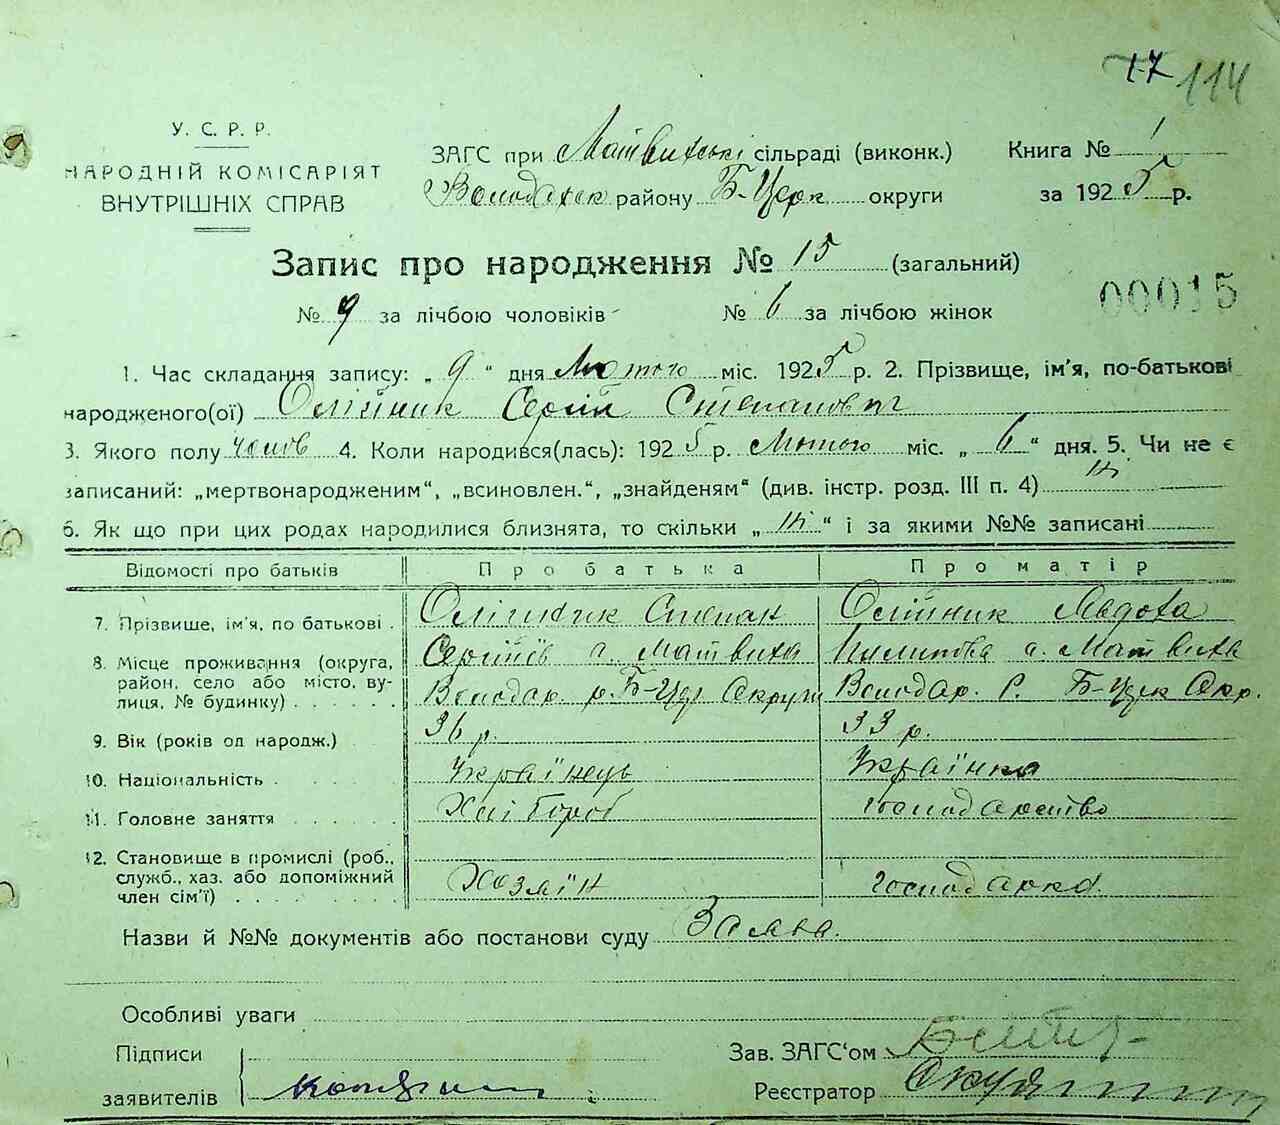 17 114
У. С. Р. Р.
НАРОДНІЙ КОМІСАРІЯТ
ВНУТРІШНІХ СПРАВ
ЗАГС при Матвихські сільраді (виконк.)
Володарск району Б-Церк округи
Книга № 1
за 1925 р.
Запис про народження № 15 (загальний)
№ 9 за лічбою чоловіків № 6 за лічбою жінок
00015
1. Час складання запису: „ 9 “ дня Лютого міс. 1925 р. 2. Прізвище, ім'я, по-батькові
народженого(ої) Олійник Сергій Степанович
3. Якого полу чолов 4. Коли народився(лась): 1925 р. Лютого міс. „ 6 “ дня. 5. Чи не є
записаний: „мертвонародженим“, „всиновлен.“, „знайденям“ (див. інстр. розд. III п. 4) ні
6. Як що при цих родах народилися близнята, то скільки „ ні “ і за якими №№ записані
Відомості про батьків Про батька Про матір
7. Прізвище, ім'я, по батькові . Олійник Степан Олійник Явдоха
8. Місце проживання (округа, Сергіїв с. Матвиха Пилипова с. Матвиха
район, село або місто, ву- Володар. р. Б-Церк Округи Володар. Р. Б-Церк Окр.
лиця, № будинку) . . . . . .
9. Вік (років од народж.) 36 р. 33 р.
10. Національність . Українець Українка
11. Головне заняття . . . . . Хлібороб господарство
12. Становище в промислі (роб.,
служб., хаз. або допоміжний Хозяїн Господарка.
член сім'ї) . . . . . . . .
Назви й №№ документів або постанови суду Заява.
Особливі уваги
Підписи
заявителів
Зав. ЗАГС'ом
Реєстратор